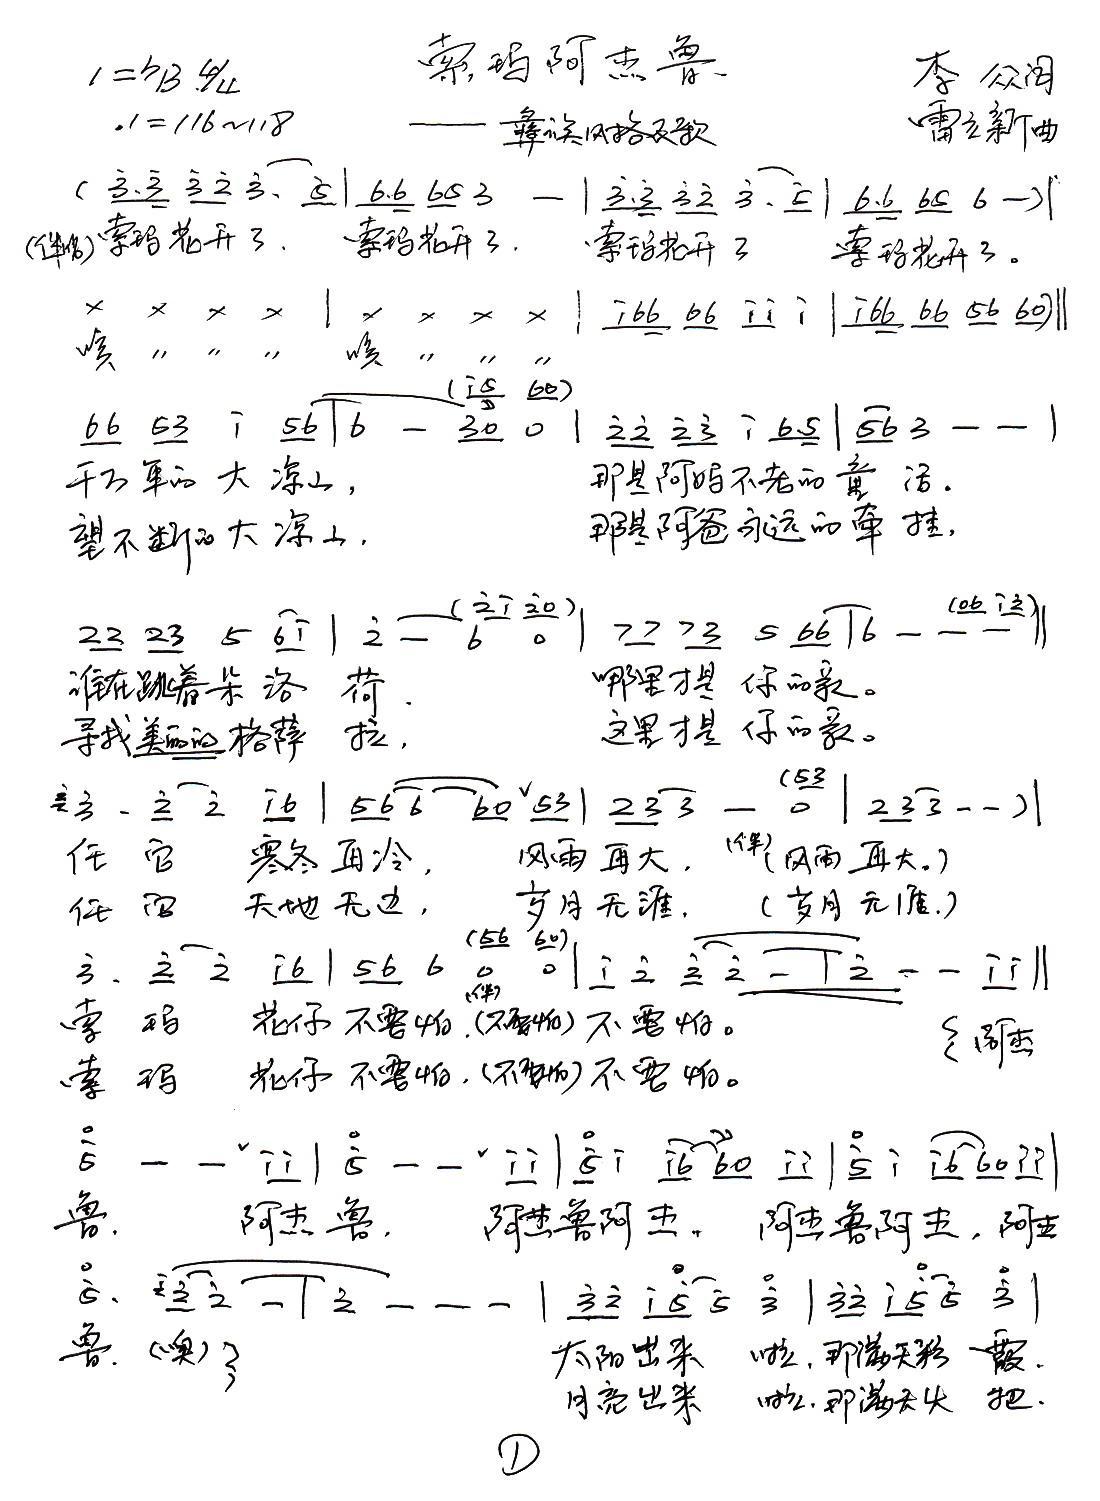 1=♭B 4/4 索玛阿杰鲁 李众 词
♩=116~118 ——彝族风格夏歌 雷立新 曲
(3.3 32 3. 5|6.6 65 3 —|3.3 32 3. 5|6.6 65 6 —)|
(伴唱) 索玛花开了. 索玛花开了. 索玛花开了 索玛花开了。
× × × ×|× × × ×|i66 66 ii i|i66 66 56 60)‖
嗨 〃 〃 〃 嗨 〃 〃 〃
(i5 60)
66 53 i 56|6 — 30 0|22 23 i 65|56 3 — —|
千万年的大凉山, 那是阿妈不老的童话.
望不断的大凉山, 那是阿爸永远的牵挂,
(2i 20) (06 i2)
22 23 5 6i|2 — 6 0|77 73 5 66|6 — — —‖
谁在跳着朵洛荷. 哪里才是你的家。
寻找美丽的格萨拉, 这里才是你的家。
(53
3. 2 2 i6|56 6 60 53|23 3 — 0|23 3 — —)|
任它寒冬再冷, 风雨再大, (伴)(风雨再大。)
任凭天地无边, 岁月无涯, (岁月无涯.)
(56 60)
3. 2 2 i6|56 6 0 0|i 2 2 2 —|2 — — ii‖
(伴)
索玛花仔不需怕, (不需怕) 不需怕。 {阿杰
索玛花仔不需怕, (不需怕) 不需怕。
5 — — ii|5 — — ii|5 i i6 60 ii|5 i i6 60 ii|
鲁. 阿杰鲁, 阿杰鲁阿杰, 阿杰鲁阿杰, 阿杰
5. 32 2 —|2 — — —|32 i5 5 3|32 i5 5 3|
鲁. (噢)} 太阳出来啦, 那满天彩霞.
月亮出来啦, 那满天火把.
①